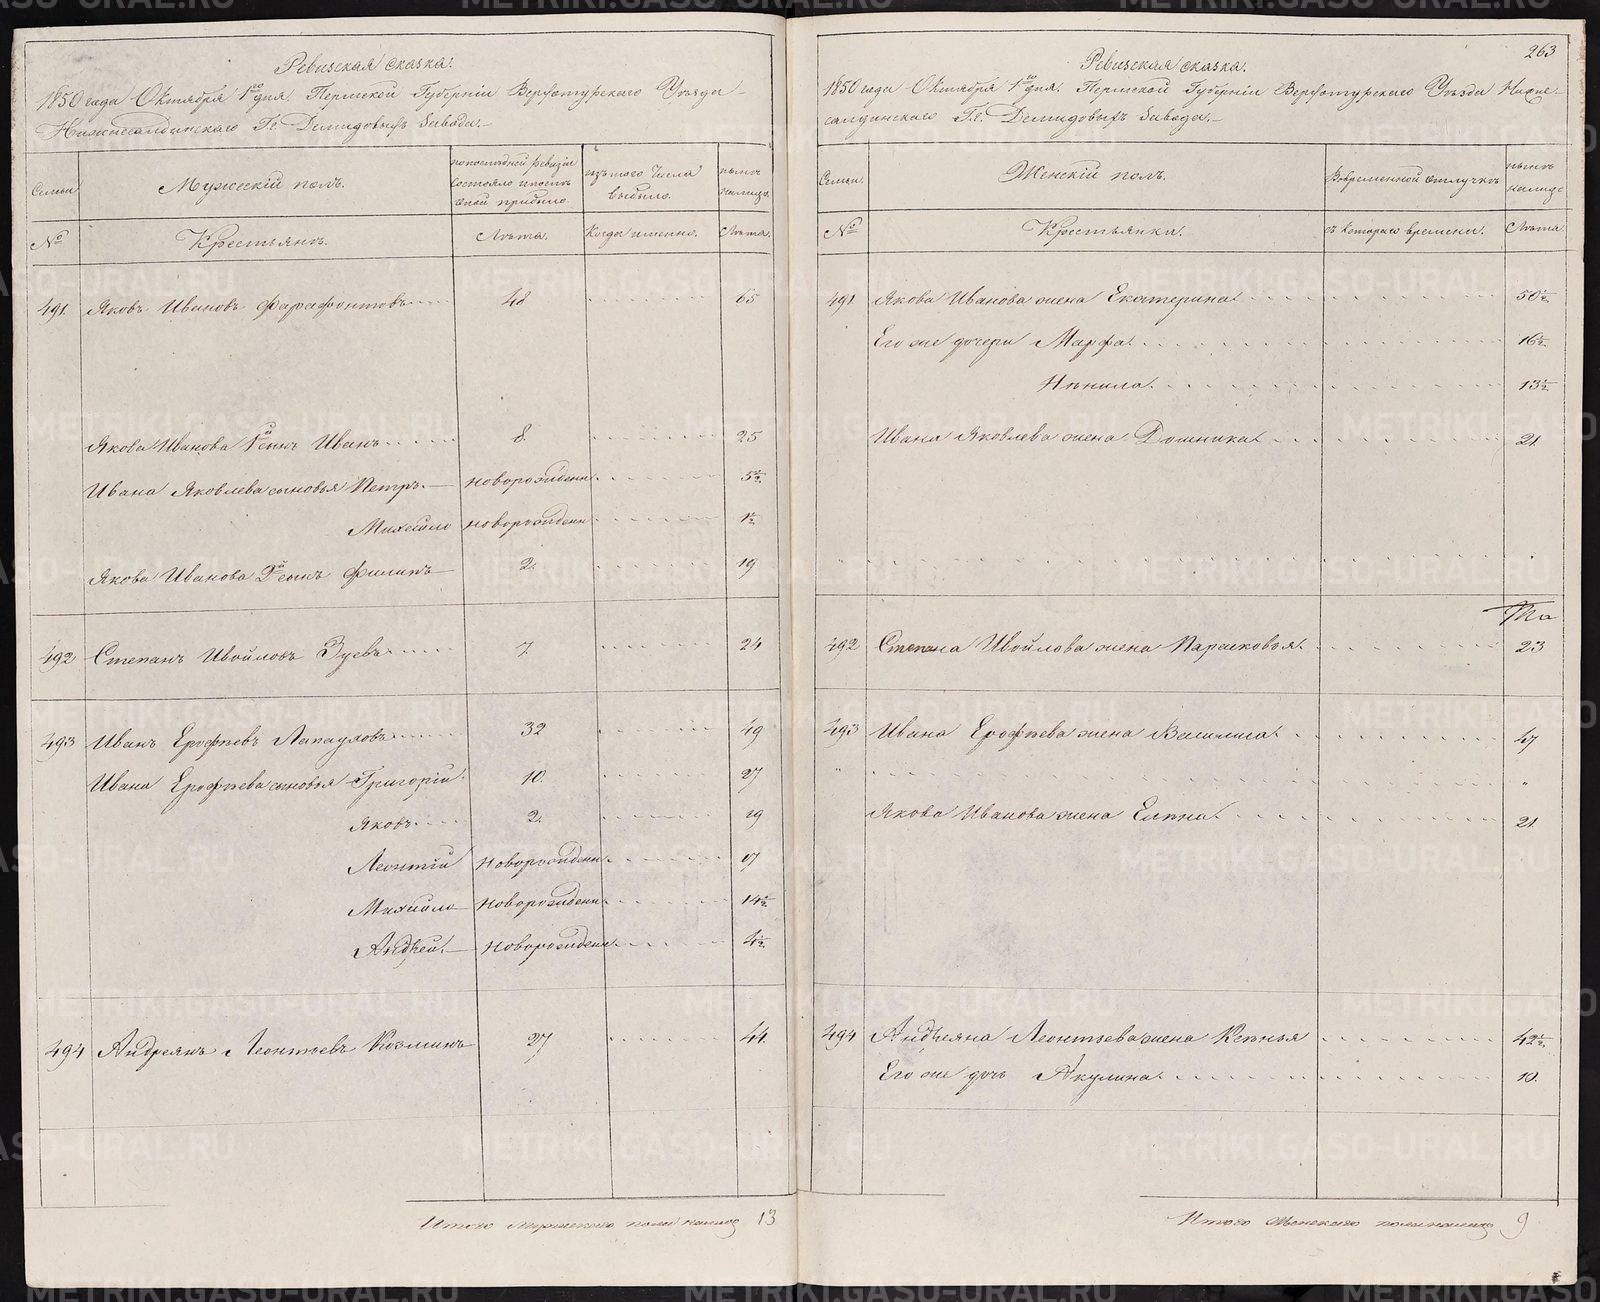 Ревизская сказка.
1850 года Октября 1го дня. Пермской Губернiи Верхотурскаго Уѣзда
Нижнесалдинскаго Гг. Демидовыхъ Завода.
Семьи
Мужескiй полъ.
по последней ревизiи состояло и после оной прибыло
изъ того числа выбыло.
нынѣ налицо.
№
Крестьянъ.
Лѣта.
Когда именно.
Лѣта.
491. Яковъ Ивановъ Фарафонтовъ 48 65
Якова Иванова 1й сынъ Иванъ 8. 25
Ивана Яковлева сыновья Петръ. новорожденн. 5½.
Михайло новорожденн ½.
Якова Иванова 2й сынъ Филипъ 2. 19
492 Степанъ Ивойловъ Зуевъ 7. 24
493 Иванъ Ерофѣевъ Лапауховъ 32 49
Ивана Ерофѣева сыновья Григорiй. 10. 27
Яковъ 2. 19
Леонтiй новорожденн. 17
Михайло новорожденн. 14½
Андрей. новорожденн. 4½.
494 Андреянъ Леонтьевъ Козминъ 27 44.
Итого Мужескаго пола налицо 13
263
Ревизская сказка.
1850 года Октября 1го дня. Пермской Губернiи Верхотурскаго Уѣзда Нижне-
салдинскаго Гг. Демидовыхъ Завода.
Семьи.
Женскiй полъ.
Во временной отлучкѣ
нынѣ налицо
№
Крестьянки.
съ котораго времени.
Лѣта
491. Якова Иванова жена Екатерина. 50½.
Его же дочери Марфа. 16½.
Нѣнила. 13½.
Ивана Яковлева жена Домника. 21.
492 Степана Ивойлова жена Парасковья. 23
493 Ивана Ерофѣева жена Василиса. 47
Якова Иванова жена Елѣна. 21.
494 Андреяна Леонтьева жена Ксѣнья 42½.
Его же дочь Акулина. 10.
Итого Женскаго пола налицо 9
METRIKI.GASO-URAL.RU